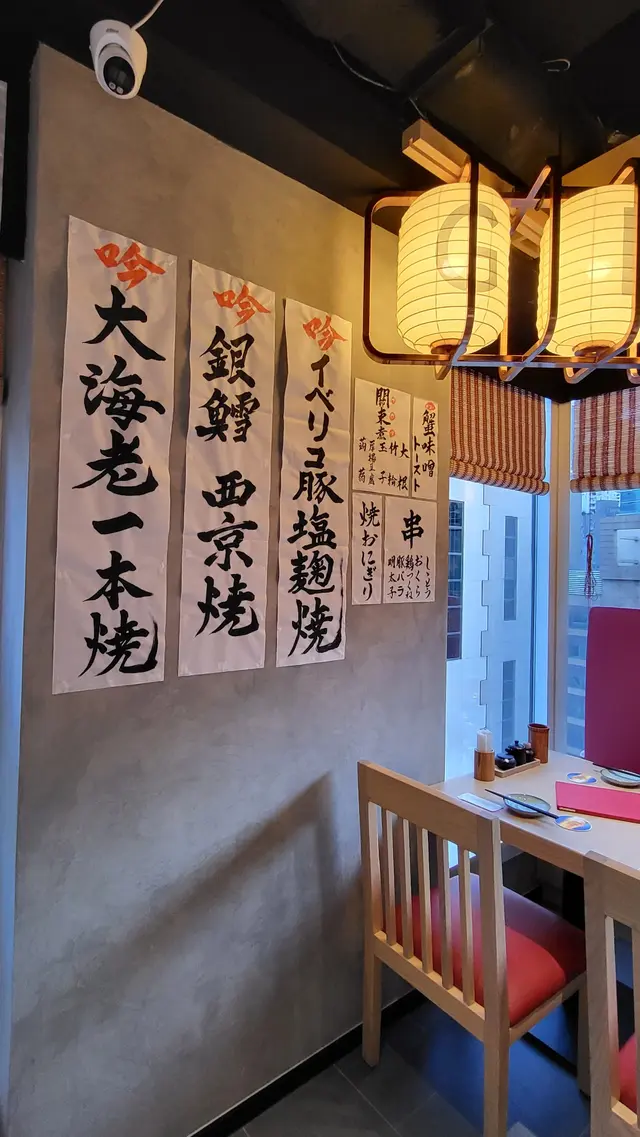 吟
大海老一本焼
吟
銀鱈 西京焼
吟
イベリコ豚塩麹焼
蟹味噌
トースト
關東煮
大根
竹輪
玉子
蒟蒻
焼おにぎり
串
ししとう
おくら
鶏つくね
豚バラ
明太子
G